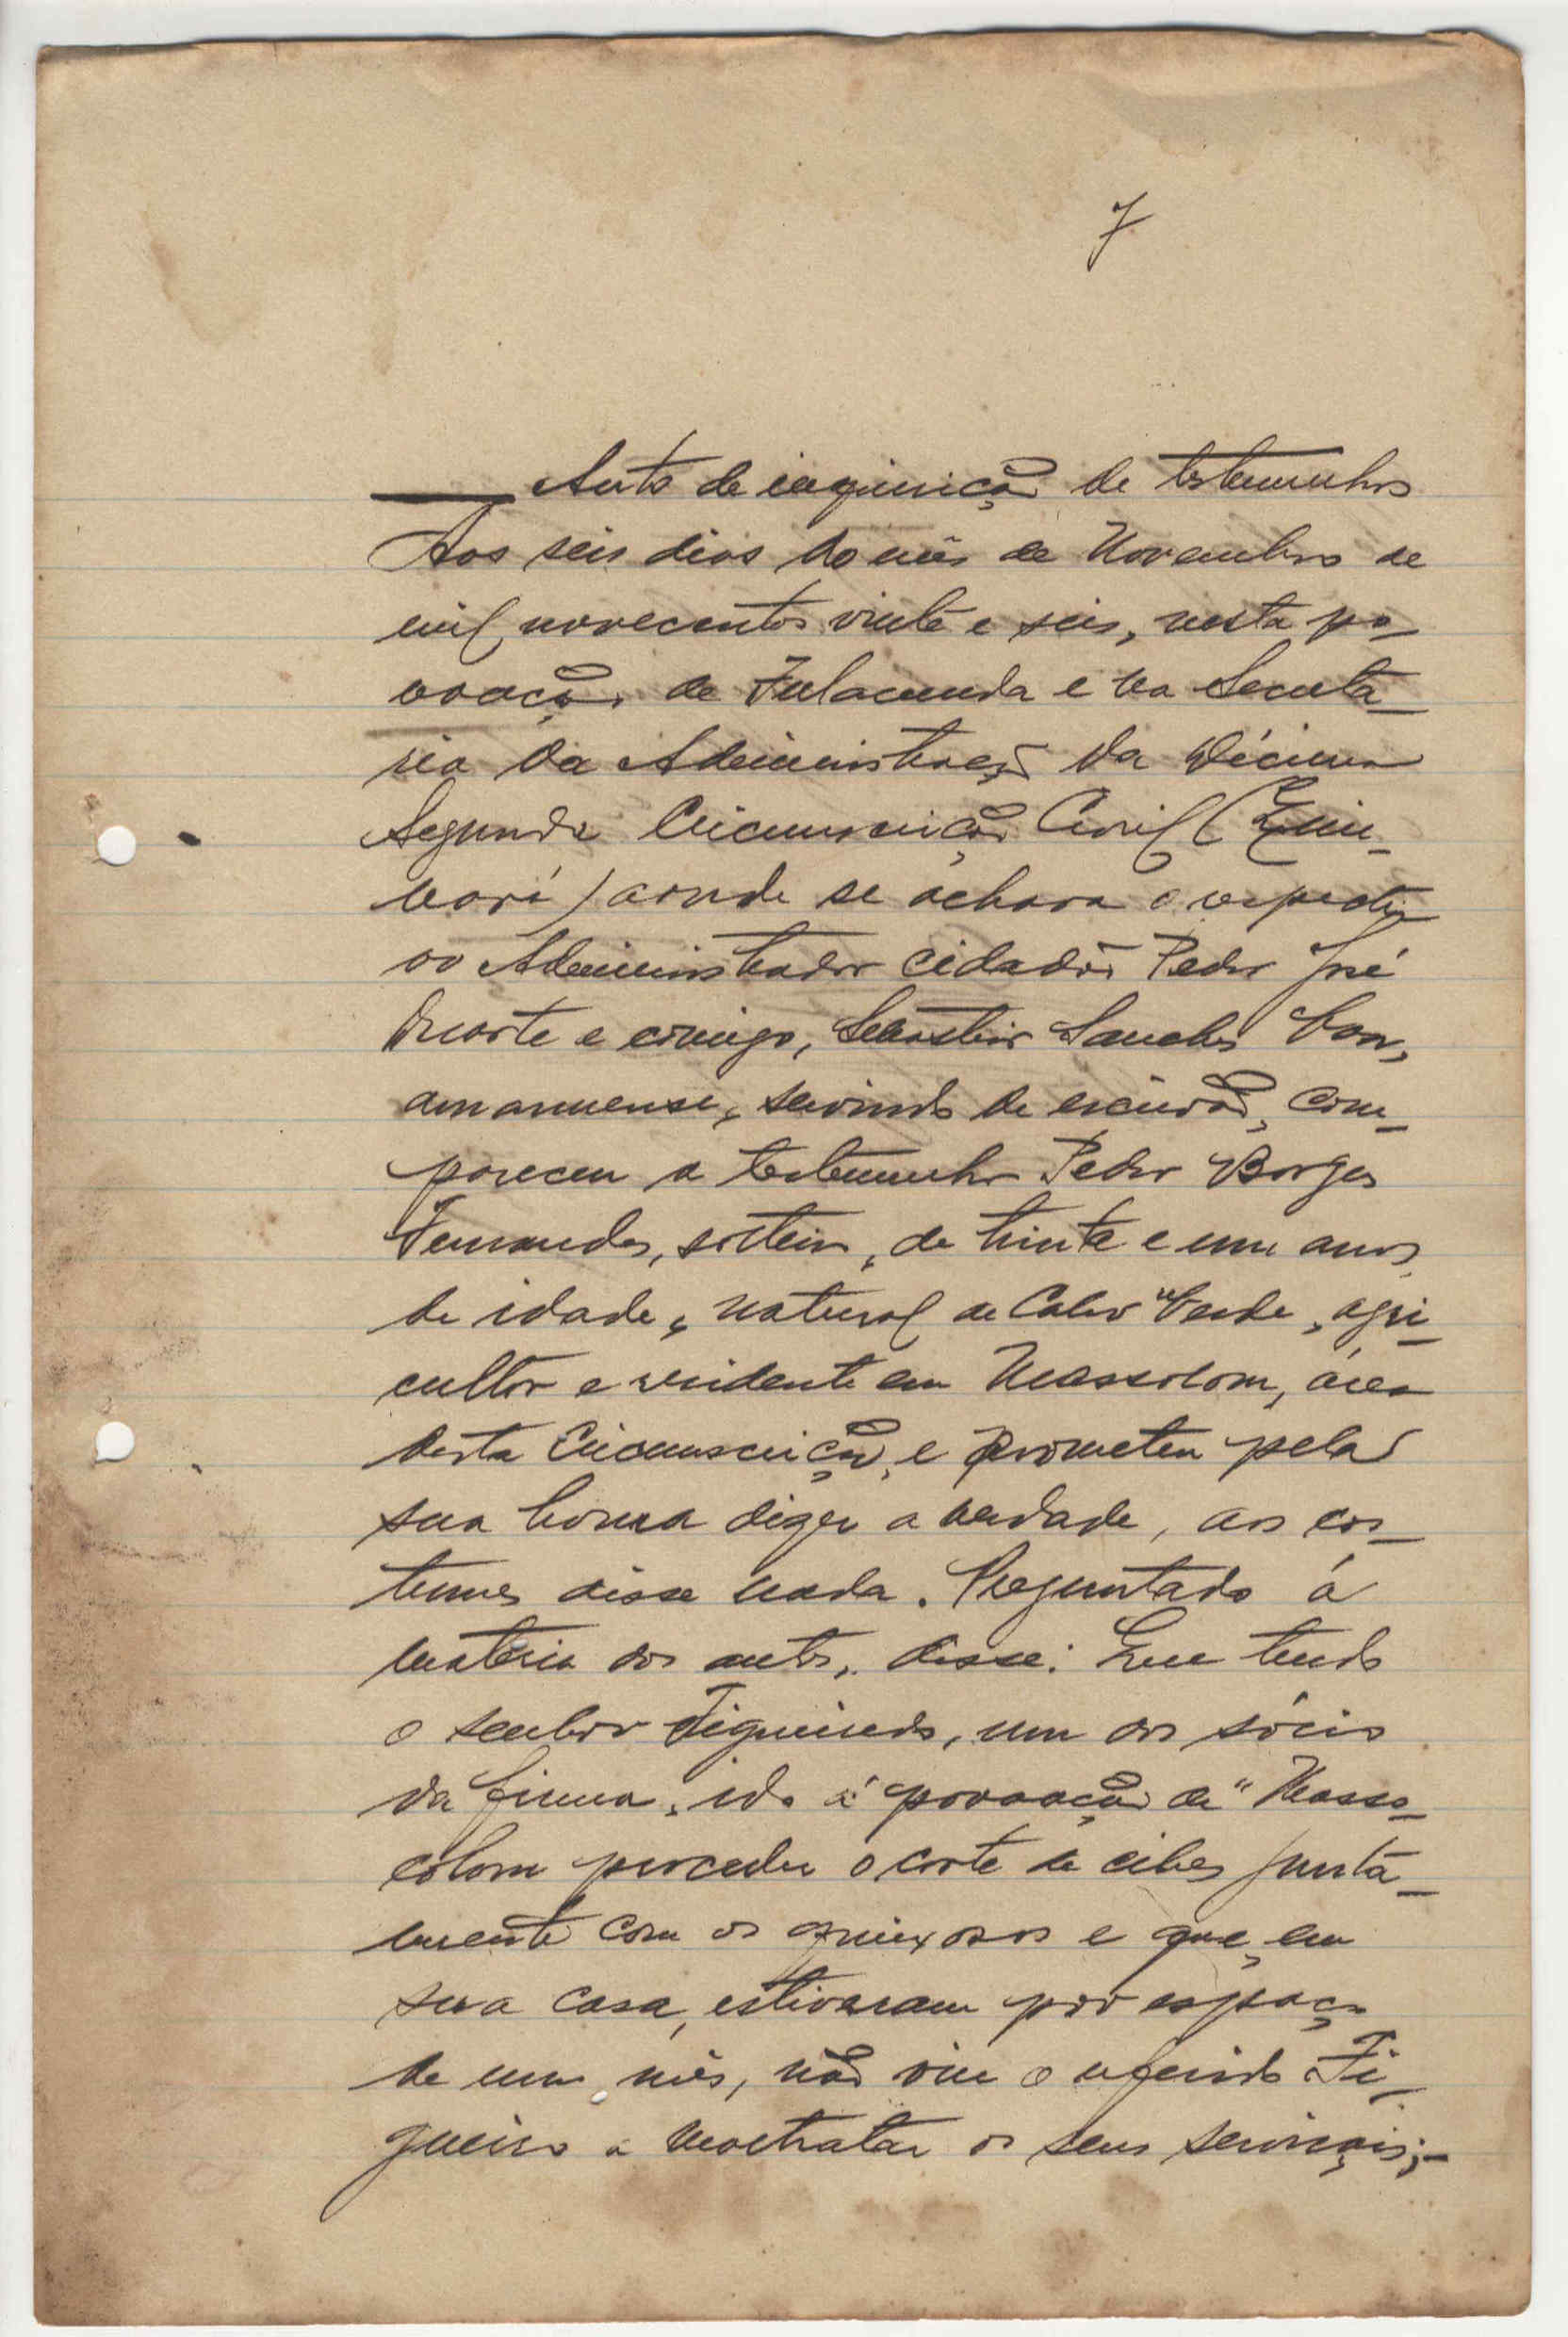 7
Auto de inquirição de testemunhas
Aos seis dias do mês de Novembro de
mil novecentos vinte e seis, nesta po-
voação de Fulacunda e na Secretá-
ria da Administração da Décima
Segunda Circunscrição Civil (Quin-
nará) aonde se achava o respecti-
vo Administrador cidadão Pedro José
Duarte e comigo, Sebastião Sanches Vaz,
amanuense, servindo de escrivão, com-
pareceu a testemunha Pedro Borges
Fernandes, solteiro, de trinta e um anos
de idade, natural de Cabo Verde, agri-
cultor e residente em Massolom, área
desta Circunscrição, e prometeu pela
sua honra dizer a verdade, aos cos-
tumes disse nada. Preguntado á
matéria dos autos, disse: Que tendo
o senhor Figueiredo, um dos sócios
da firma, ido á povoação de "Masso-
colom proceder o corte de cibes junta-
mente com os queixosos e que em
sua casa, estiveram por espaço
de um mês, não viu o referido Fi-
gueiro a maltratar os seus serviçais;-